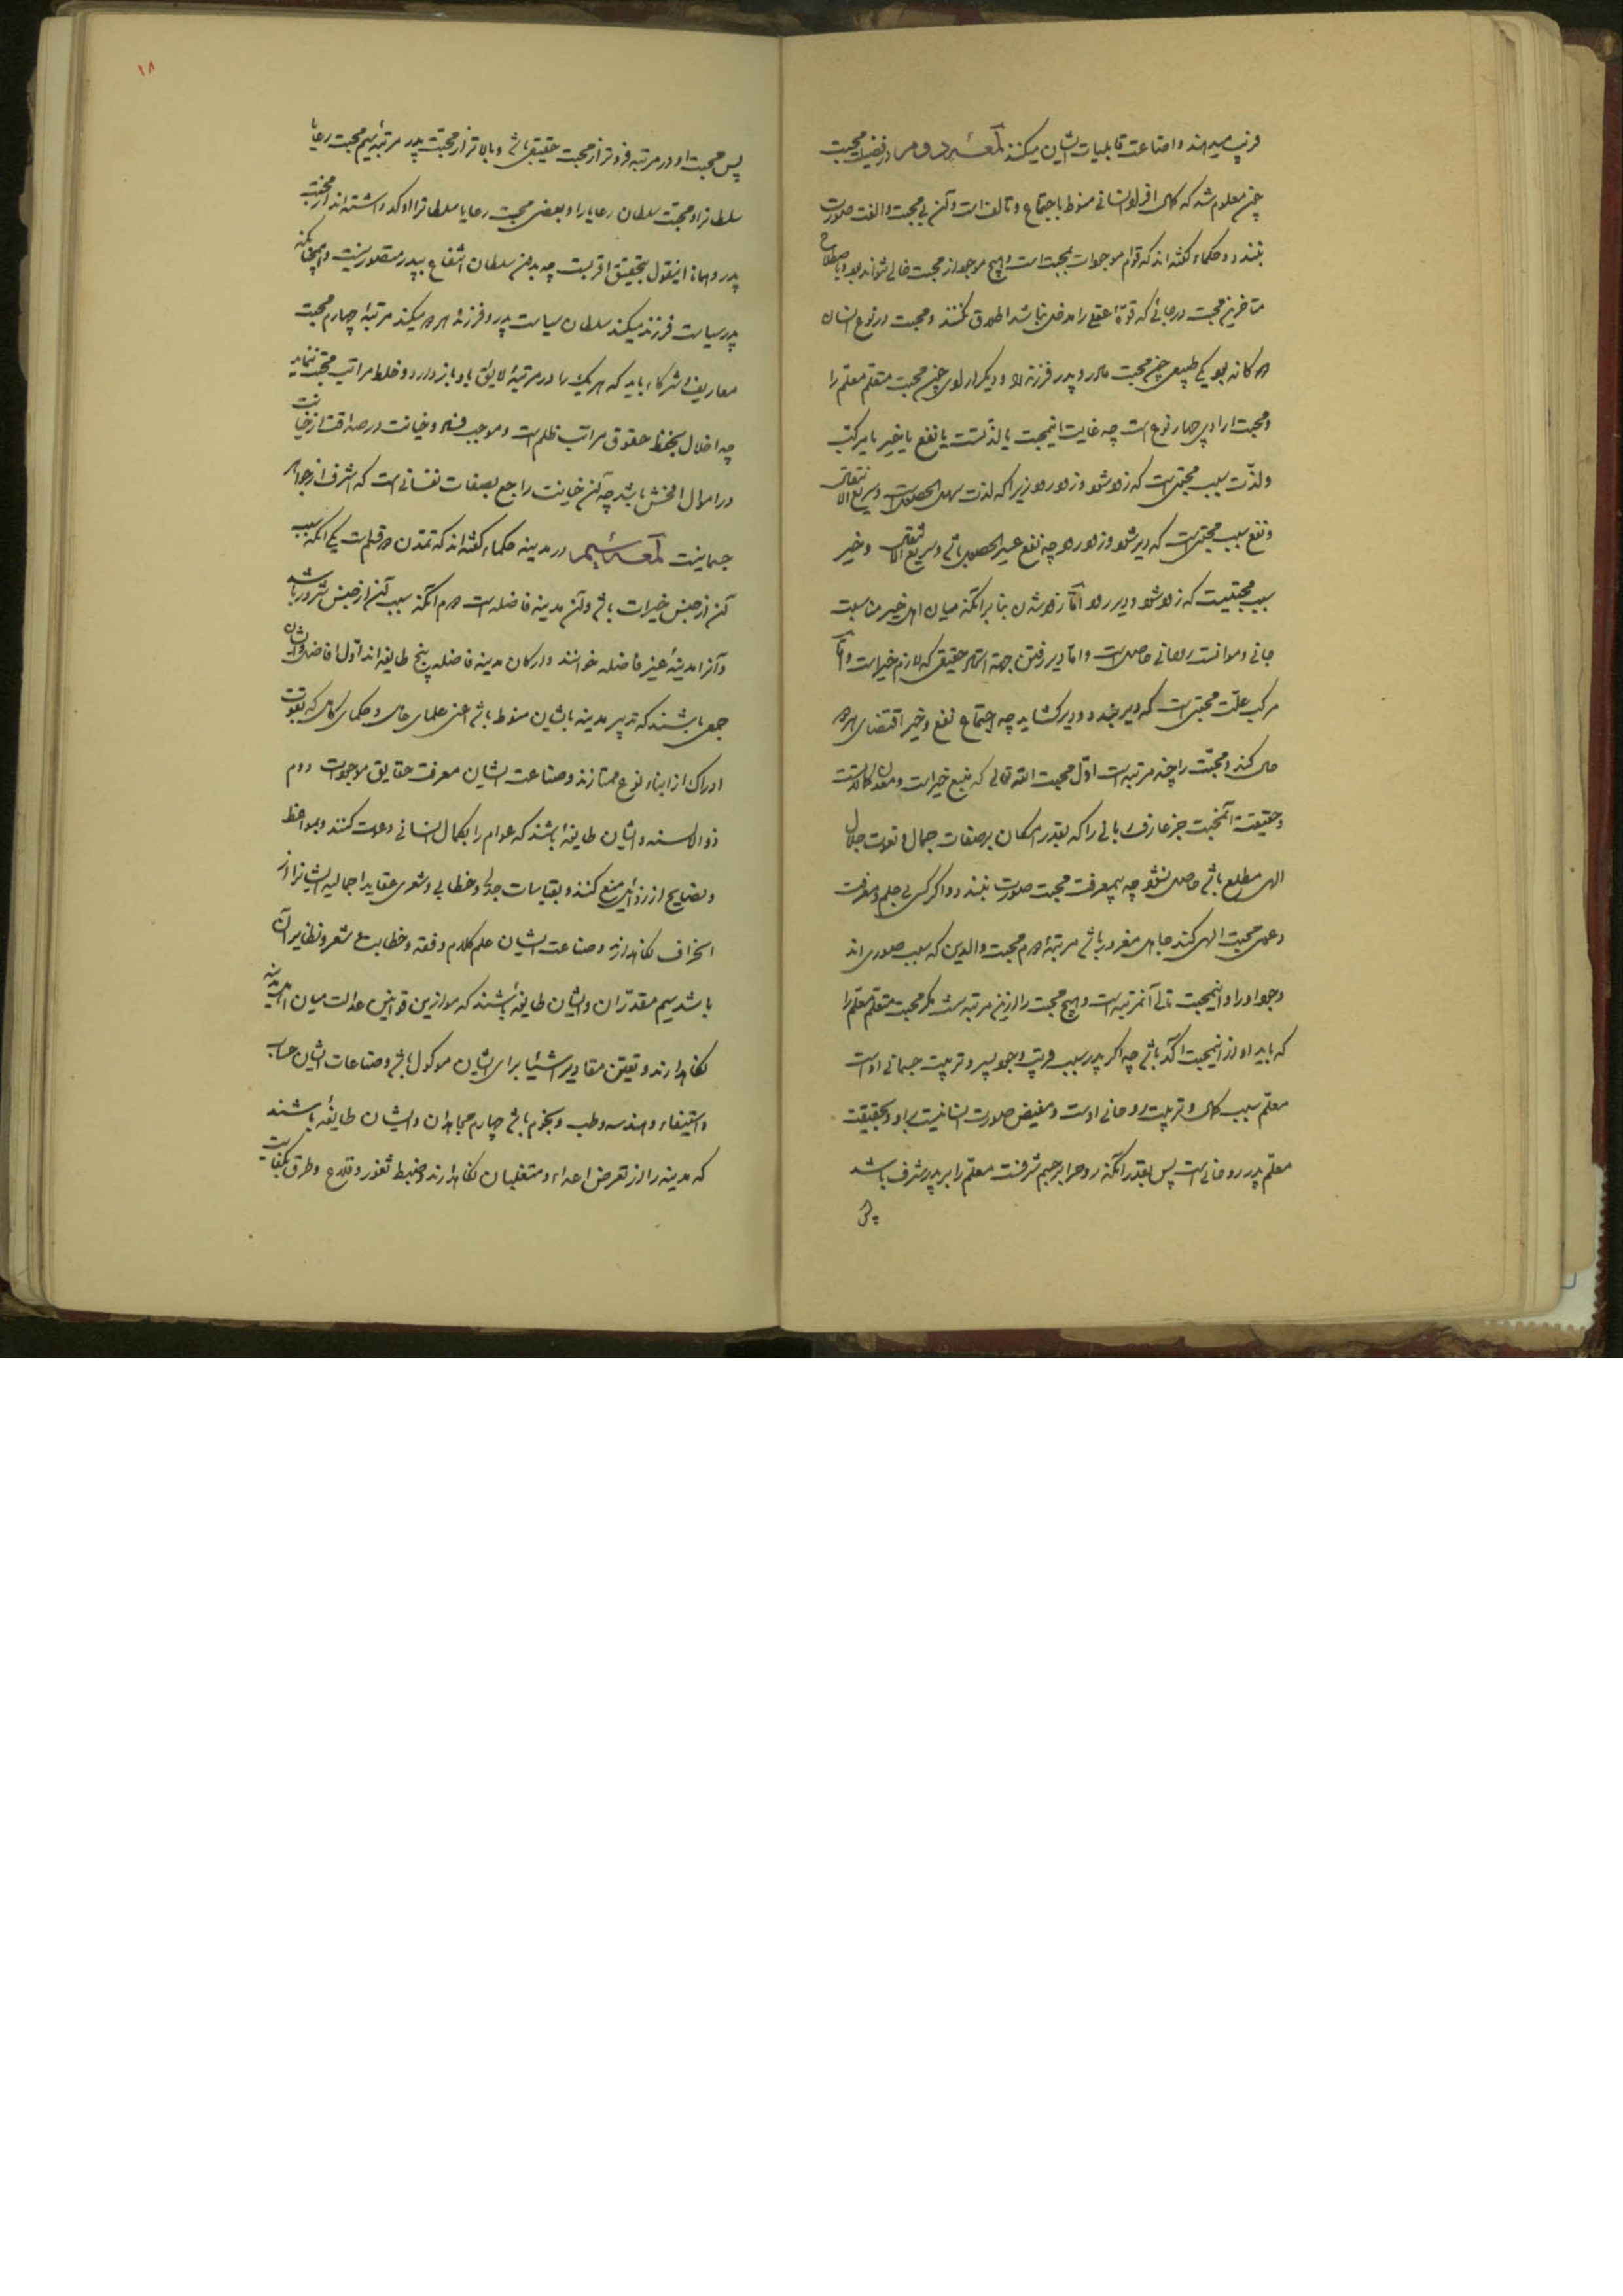 فریب میدهند و اضاعت قابلیات ایشان میکنند لمعه دوم در فضیلت محبت
چون معلوم شد که کمال افراد انسانی منوط باجتماع و تالف است و آن بی محبت و الفت صورت
نبندد و حکماء گفته اند که قوام موجودات بمحبت است و هیچ موجود از محبت خالی نتواند بود و باصطلاح
متاخرین محبت در جائی که قوة عقلی را مدخلی نباشد اطلاق نکنند و محبت در نوع انسان
دو کانه بود یکی طبیعی چون محبت مادر و پدر فرزند را و دیگر ارادی چون محبت متعلم معلم را
و محبت ارادی چهار نوع است چه غایت اینمحبت یا لذتست یا نفع یا خیر یا مرکب
و لذت سبب محبتی است که زود شود و زود رود زیرا که لذت سهل الحصول است و سریع الانتقال
و نفع سبب محبتی است که دیر شود و زود رود چه نفع عسیر الحصول باشد و سریع الانتقال و خیر
سبب محبتیست که زود شود و دیر رود اما زود شدن بنا بر آنکه میان اهل خیر مناسبت
جانی و موانست روحانی حاصل است و اما دیر رفتن بجهة اتحاد حقیقی که لازم خیر است و اما
مرکب علت محبتی است که دیر بندد و دیر گشاید چه اجتماع نفع و خیر اقتضای هر دو
حال کند و محبت را چند مرتبه است اول محبت الله تعالی که منبع خیرات و معدن کمالاتست
و حقیقة آنمحبت جز عارف ربانی را که بقدر امکان بر صفات جمال و نعوت جلال
الهی مطلع باشد حاصل نشود چه بیمعرفت محبت صورت نبندد و اگر کسی بی علم و معرفت
دعوی محبت الهی کند جاهل مغرور باشد مرتبه دوم محبت والدین که سبب صوری اند
وجود او را و اینمحبت تالی آنمرتبه است و هیچ محبت را از این مرتبه نیست مگر محبت متعلم معلم را
که باید او از اینمحبت آکد باشد چه اگر پدر سبب قریب وجود پسر و تربیت جسمانی اوست
معلم سبب کمال و تربیت روحانی اوست و مفیض صورت انسانیت بر او و بحقیقت
معلم پدر روحانی است پس بقدر آنکه روح را بر جسم شرفست معلم را بر پدر شرف باشد
پس
۱۸
پس محبت او در مرتبه فروتر از محبت حقیقی باشد و بالاتر از محبت پدر مرتبه سیم محبت رعایا
سلطانرا و محبت سلطان رعایا را و بعضی محبت رعایا سلطانرا اوکد داشته اند از محبت
پدر و همانا اینقول بتحقیق اقربست چه بدون سلطان انتفاع بپدر متصور نیست و همچنانکه
پدر سیاست فرزند میکند سلطان سیاست پدر و فرزند هر دو میکند مرتبه چهارم محبت
معارف و شرکاء باید که هر یک را در مرتبه لایق باو باز دارد و خلط مراتب محبت ننماید
چه اخلال بحفظ حقوق مراتب ظلم است و موجب فساد و خیانت در صداقت از خیانت
در اموال افحش باشد چه آن خیانت راجع بصفات نفسانی است که اشرف از جواهر
جسمانیست لمعه سیم در مدینه حکماء گفته اند که تمدن دو قسم است یکی آنکه سبب
آن از جنس خیرات باشد و آن مدینه فاضله است دوم آنکه سبب آن از جنس شرور باشد
و آنرا مدینه غیر فاضله خوانند و ارکان مدینه فاضله پنج طایفه اند اول افاضل و ایشان
جمعی باشند که تدبیر مدینه بایشان منوط باشد اعنی علمای عامل و حکمای کامل که بقوت
ادراک از ابناء نوع ممتازند و صناعت ایشان معرفت حقایق موجودات دوم
ذوالالسنه و ایشان طایفه باشند که عوام را بکمال انسانی دعوت کنند و بمواعظ
و نصایح از رذائل منع کنند و بقیاسات جدلی و خطابی و شعری عقاید اجمالیه ایشانرا از
انحراف نگاهدارند و صناعت ایشان علم کلام و فقه و خطابت و شعر و نظایر آن
باشد سیم مقدران و ایشان طایفه باشند که موازین قوانین عدالت میان اهل مدینه
نگاهدارند و تعیین مقادیر اشیا برای ایشان موکول باشد و صناعات ایشان حساب
و استیفاء و هندسه و طب و نجوم باشد چهارم مجاهدان و ایشان طایفه باشند
که مدینه را از تعرض اعداء و متغلبان نگاهدارند و ضبط ثغور و قلاع و طرق بکفایت